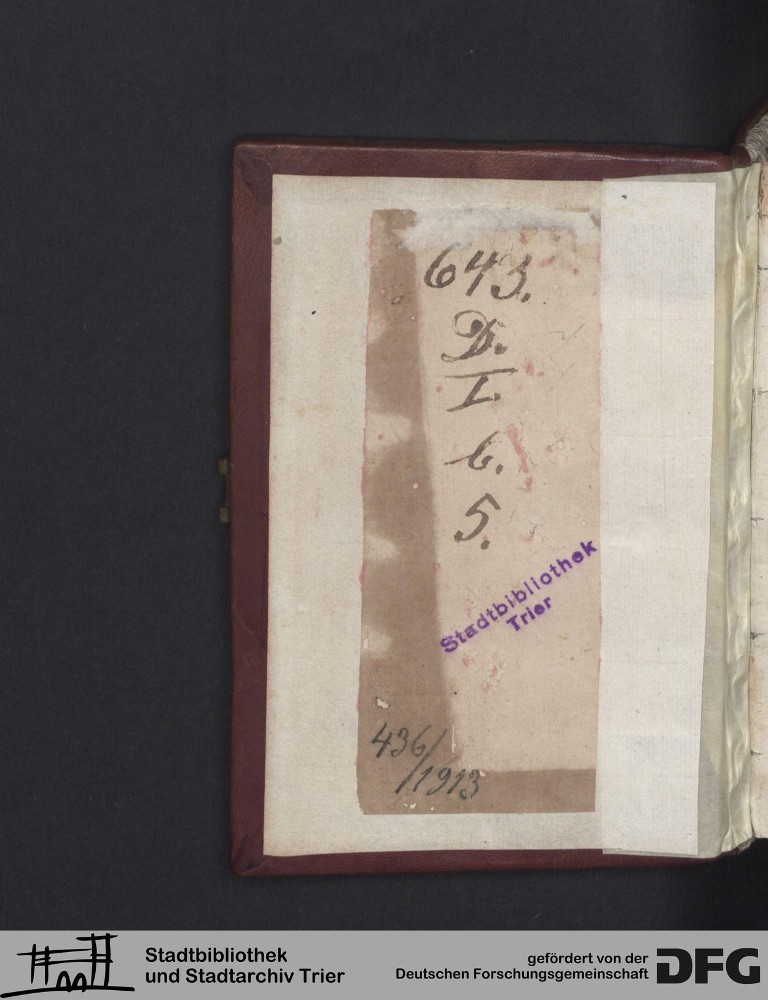 643.
D.
I.
6.
5.
Stadtbibliothek
Trier
436/
/1913
Stadtbibliothek
und Stadtarchiv Trier
gefördert von der
Deutschen Forschungsgemeinschaft
DFG